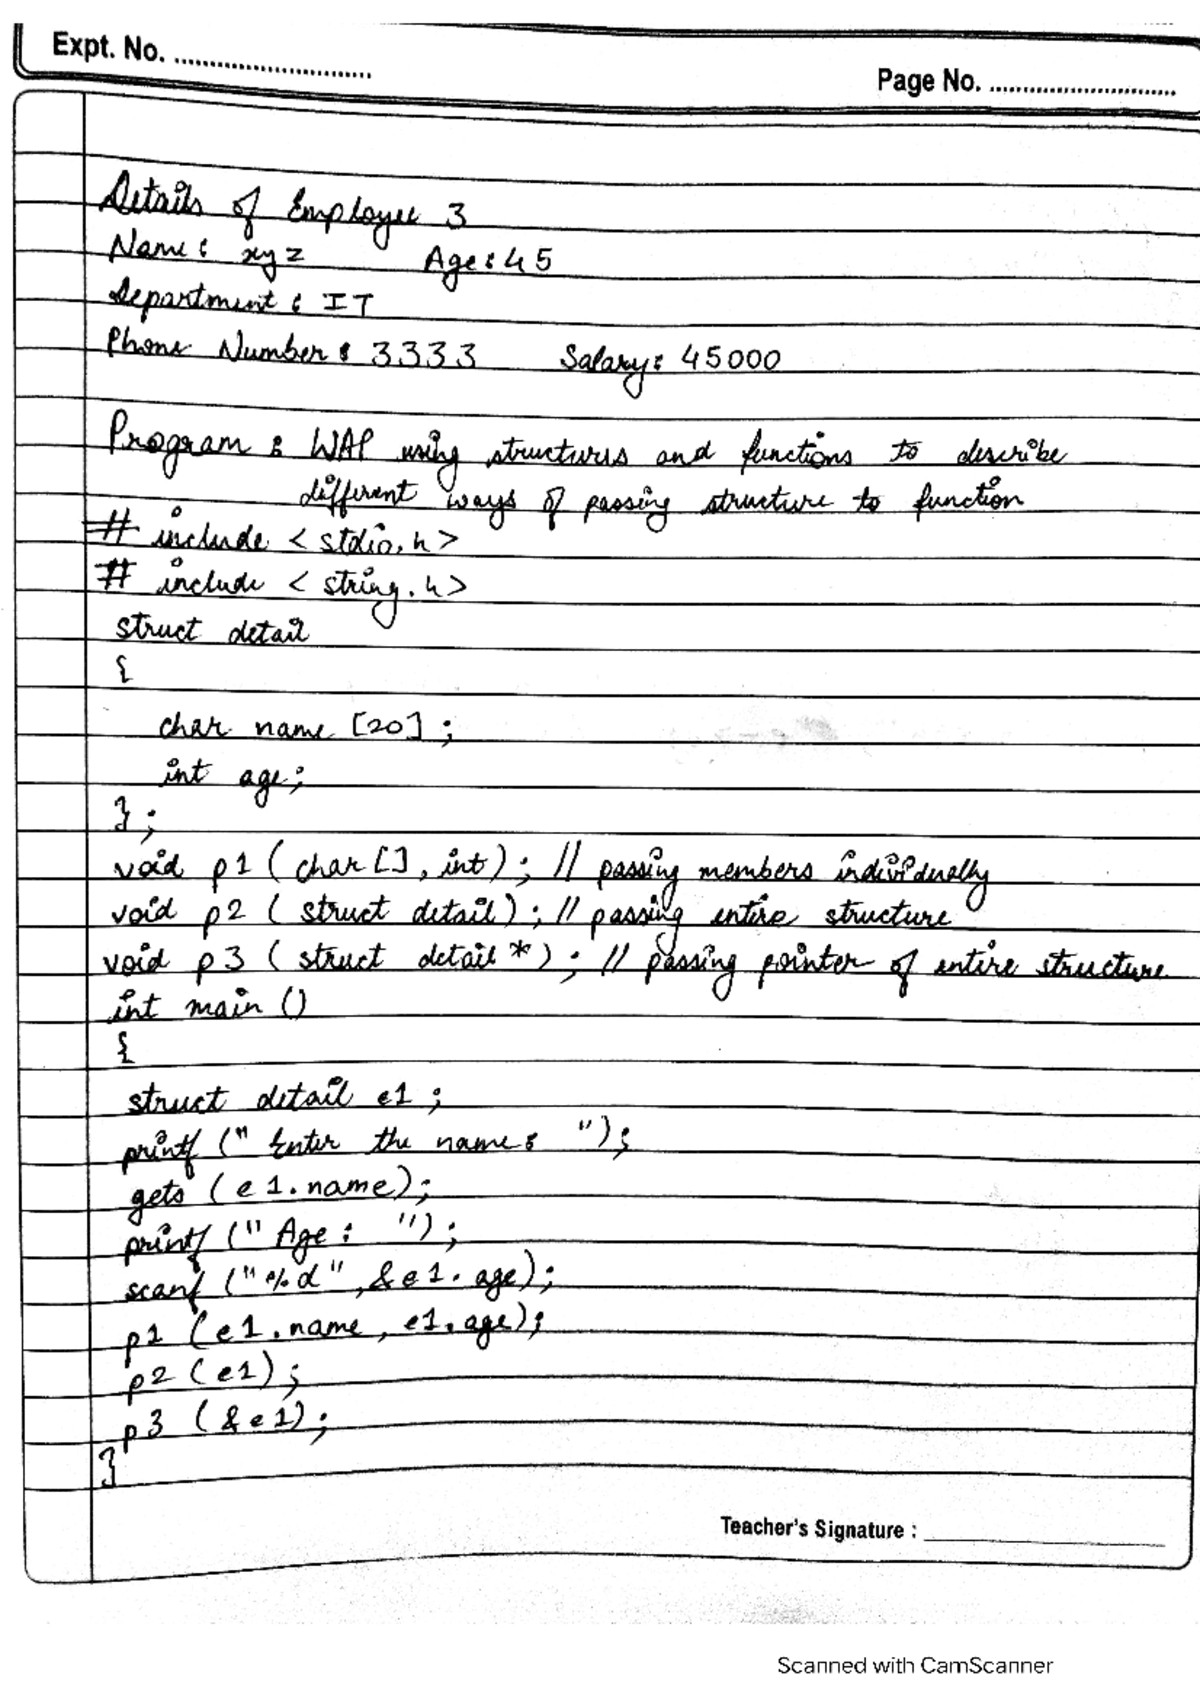 Expt. No. ........................
Page No. ........................
Details of Employee 3
Name: xyz Age: 45
Department: IT
Phone Number: 3333 Salary: 45000
Program: WAP using structures and functions to describe
different ways of passing structure to function
# include < stdio.h >
# include < string.h >
struct detail
{
char name [20] ;
int age;
} ;
void p1 ( char [], int ) ; // passing members individually
void p2 ( struct detail ) ; // passing entire structure
void p3 ( struct detail * ) ; // passing pointer of entire structure
int main ()
{
struct detail e1 ;
printf (" Enter the name: ");
gets ( e1.name);
printf (" Age : ");
scanf ("%d", &e1.age);
p1 (e1.name, e1.age);
p2 (e1) ;
p3 (&e1);
}
Teacher's Signature : ____________
Scanned with CamScanner